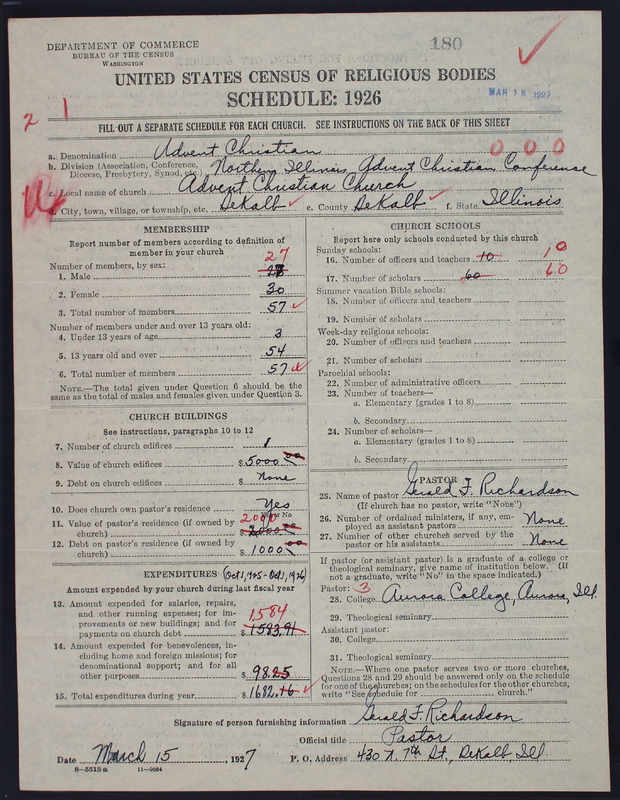 DEPARTMENT OF COMMERCE
BUREAU OF THE CENSUS
WASHINGTON
180
UNITED STATES CENSUS OF RELIGIOUS BODIES
SCHEDULE: 1926
MAR 18 1927
2 1
FILL OUT A SEPARATE SCHEDULE FOR EACH CHURCH. SEE INSTRUCTIONS ON THE BACK OF THIS SHEET
a. Denomination Advent Christian 0 0 0
b. Division (Association, Conference, Diocese, Presbytery, Synod, etc.) Northern Illinois Advent Christian Conference
c. Local name of church Advent Christian Church
d. City, town, village, or township, etc. DeKalb e. County DeKalb f. State Illinois
MEMBERSHIP
Report number of members according to definition of
member in your church
Number of members, by sex:
1. Male 27
2. Female 30
3. Total number of members 57
Number of members under and over 13 years old:
4. Under 13 years of age 3
5. 13 years old and over 54
6. Total number of members 57
NOTE.—The total given under Question 6 should be
same as the total of males and females given under Question 3.
CHURCH BUILDINGS
See instructions, paragraphs 10 to 12
7. Number of church edifices 1
8. Value of church edifices $ 5000 00
9. Debt on church edifices $ None
10. Does church own pastor's residence Yes
Yes or No
11. Value of pastor's residence (if owned by
church) 2000 $ 2000 00
12. Debt on pastor's residence (if owned by
church) $ 1000 00
EXPENDITURES (Oct 1, 1925 - Oct 1, 1926)
Amount expended by your church during last fiscal year
13. Amount expended for salaries, repairs,
and other running expenses; for im-
provements or new buildings; and for
payments on church debt 1584 $ 1583.91
14. Amount expended for benevolences, in-
cluding home and foreign missions; for
denominational support; and for all
other purposes $ 98.25
15. Total expenditures during year $ 1682.16
CHURCH SCHOOLS
Report here only schools conducted by this church
Sunday schools:
16. Number of officers and teachers 10 10
17. Number of scholars 60 60
Summer vacation Bible schools:
18. Number of officers and teachers
19. Number of scholars
Week-day religious schools:
20. Number of officers and teachers
21. Number of scholars
Parochial schools:
22. Number of administrative officers
23. Number of teachers—
a. Elementary (grades 1 to 8)
b. Secondary
24. Number of scholars—
a. Elementary (grades 1 to 8)
b. Secondary
PASTOR
25. Name of pastor Gerald F. Richardson
(If church has no pastor, write "None")
26. Number of ordained ministers, if any, em-
ployed as assistant pastors None
27. Number of other churches served by the
pastor or his assistants None
If pastor (or assistant pastor) is a graduate of a college or
theological seminary, give name of institution below. (If
not a graduate, write "No" in the space indicated.)
Pastor: 3
28. College Aurora College, Aurora, Ill.
29. Theological seminary
Assistant pastor:
30. College
31. Theological seminary
NOTE.—Where one pastor serves two or more churches,
Questions 28 and 29 should be answered only on the schedule
for one of the churches; on the schedules for the other churches,
write "See schedule for church."
Signature of person furnishing information Gerald F. Richardson
Official title Pastor
Date March 15, 1927 P. O. Address 430 N. 7th St., DeKalb, Ill
8-5513a 11-9054